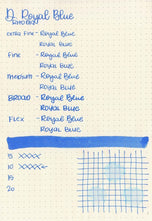 D. Royal Blue
extra Fine - Royal Blue
Royal Blue
Fine - Royal Blue
Royal Blue
Medium - Royal Blue
Royal Blue
Broad - Royal Blue
Royal Blue
Flex - Royal Blue
Royal Blue
5 xxxxx
10 xxxxx
15
20